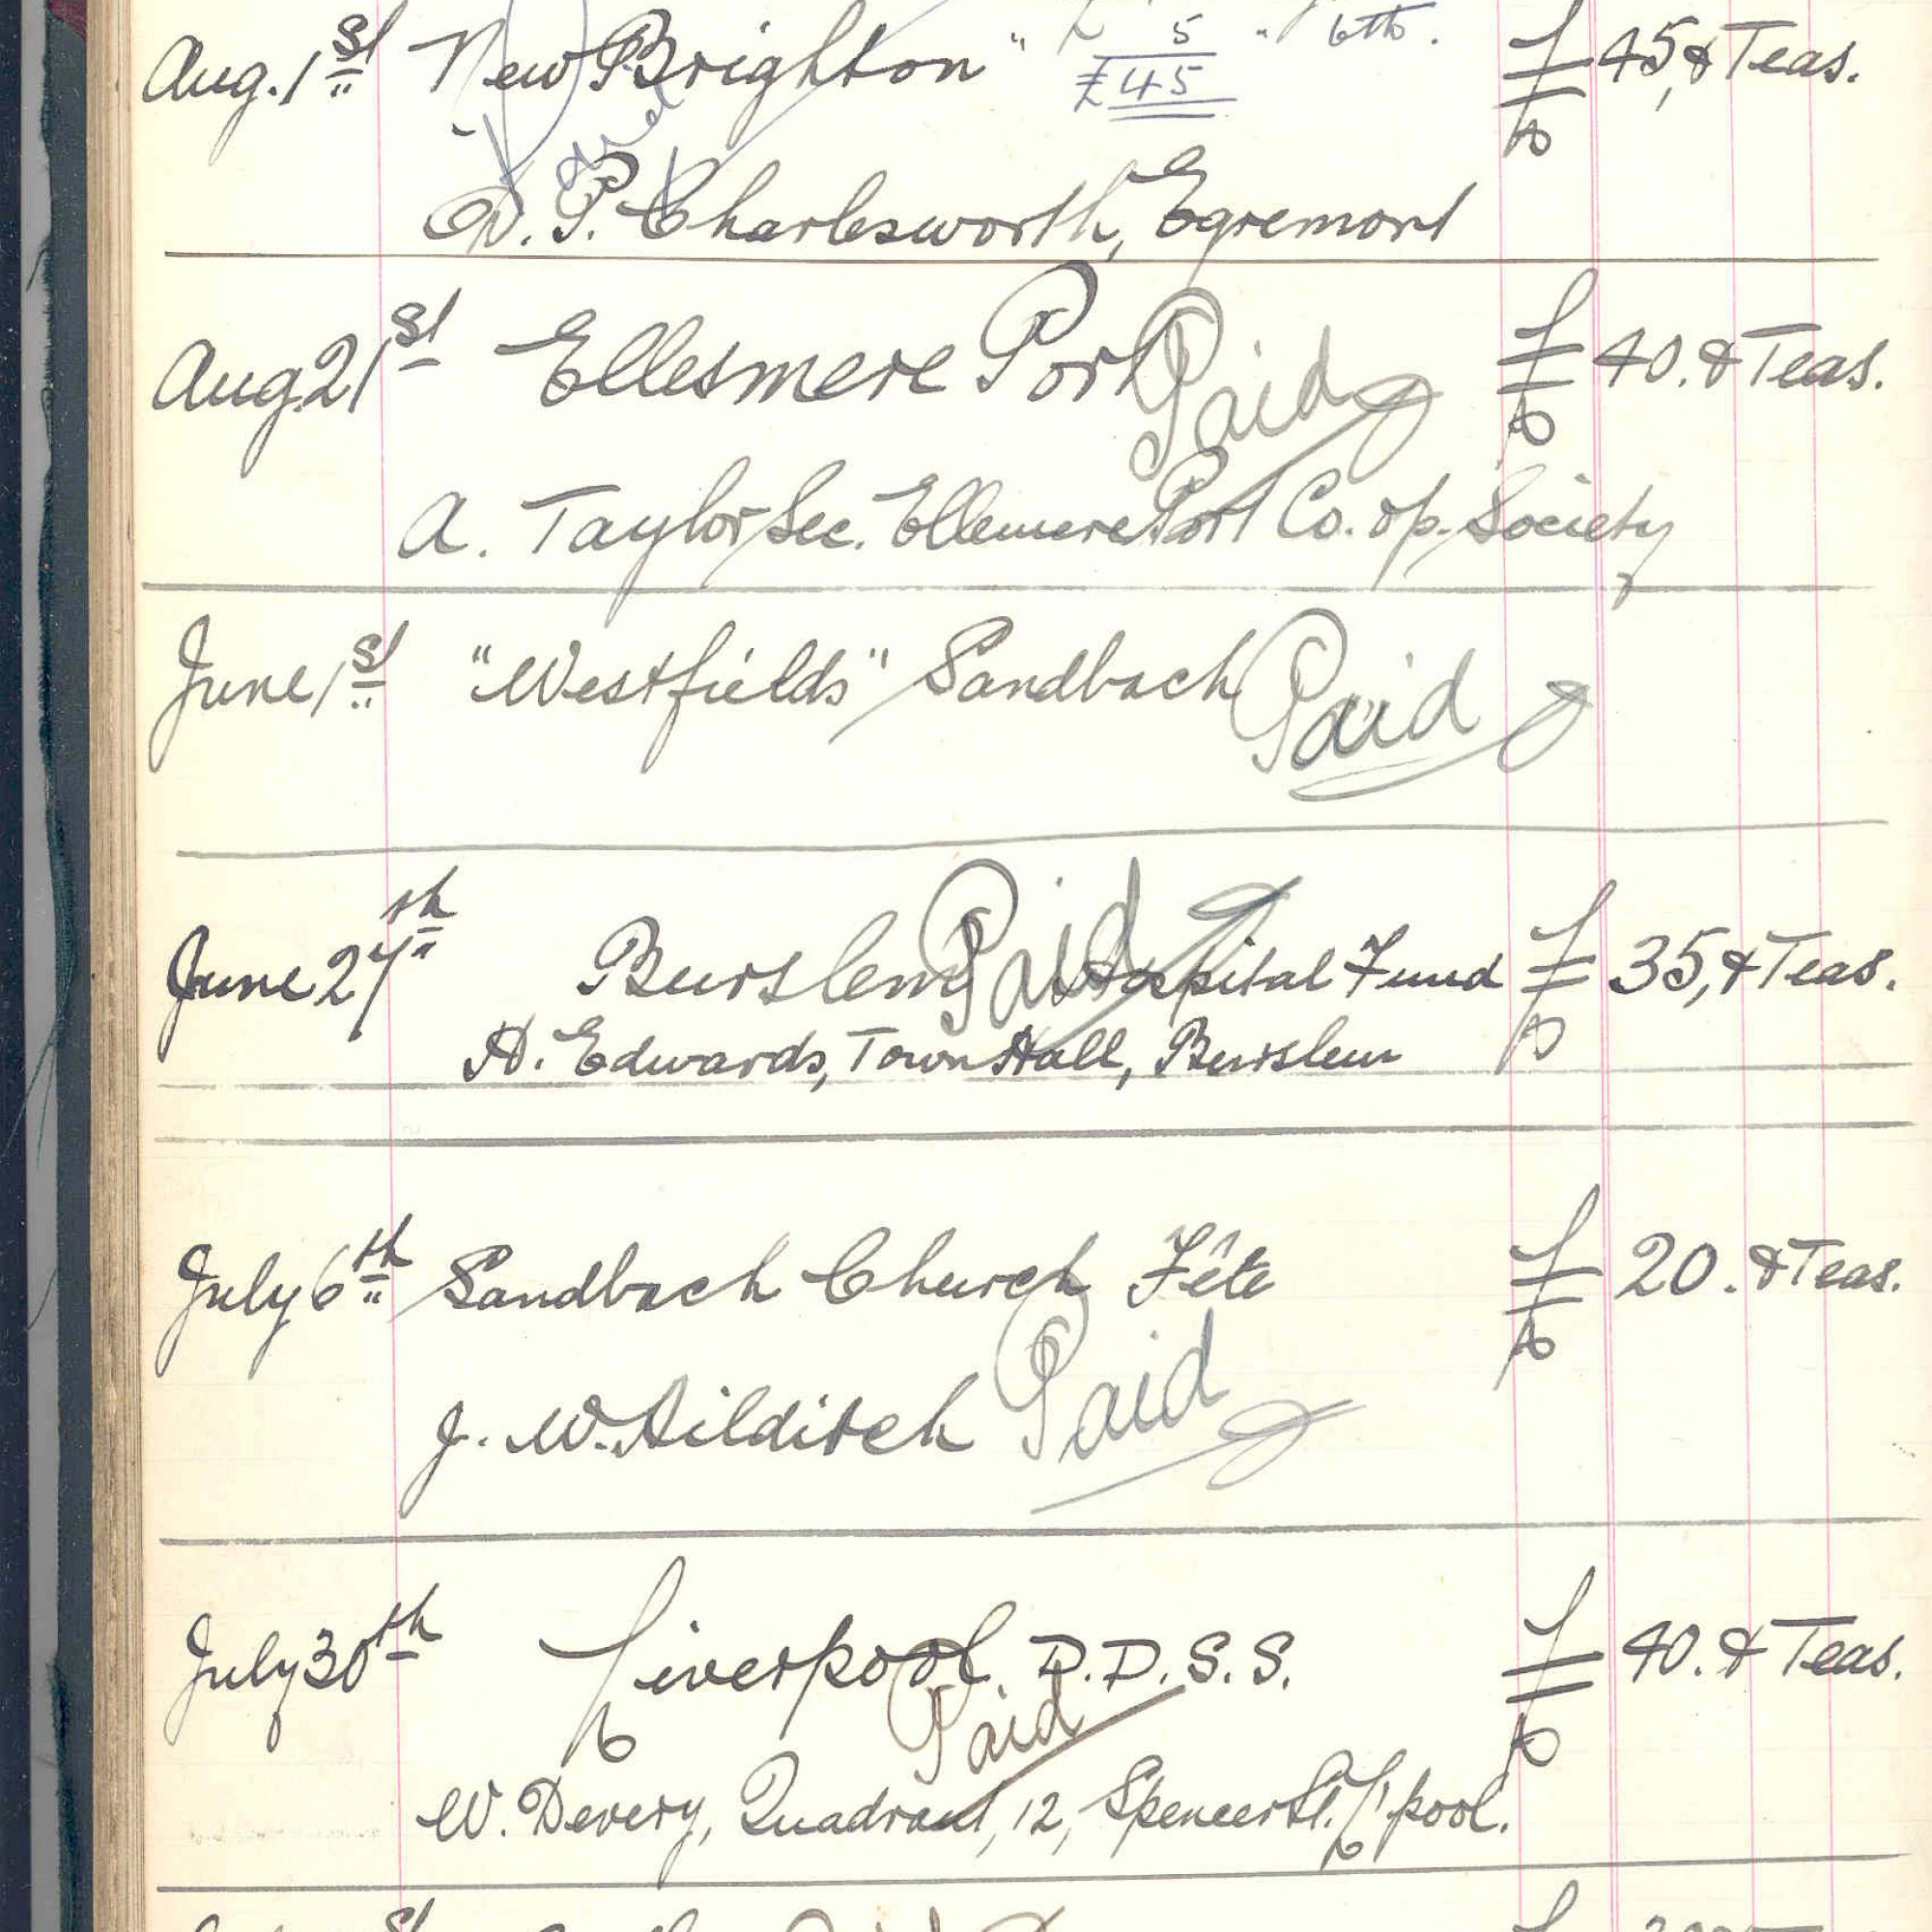 5 " 6th.
Aug. 1st New Brighton " £45 £45, & Teas.
P. Charlesworth, Egremont
Aug 21st Ellesmere Port Paid £40. & Teas.
A. Taylor Sec. Ellemere Port Co. op. Society
June 1st "Westfields" Sandbach Paid
June 27th Burslem Paid Hospital Fund £35, & Teas.
H. Edwards, Town Hall, Burslem
July 6th Sandbach Church Fête £20. & Teas.
J. W. Hilditch Paid
July 30th Liverpool. D.D.S.S. £40. & Teas.
Paid
W. Devery, Quadrant, 12, Spencer St. L'pool.